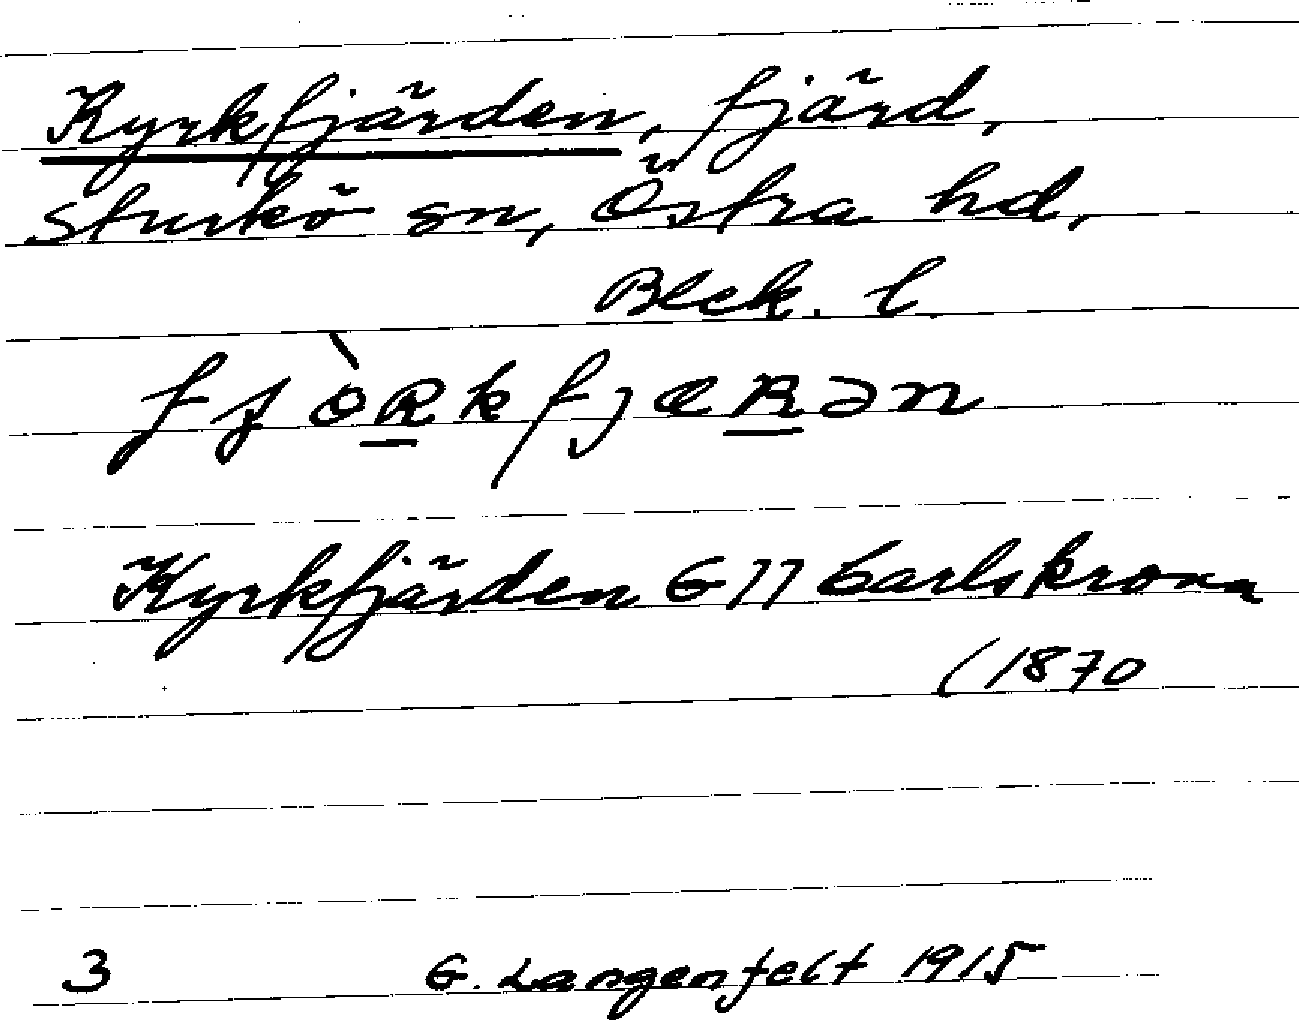 Kyrkfjärden, fjärd,
Sturkö sn, Östra hd,
Blek. l.
Kyrkfjärden G 77 Carlskrona
(1870
3 G. Langenfelt 1915